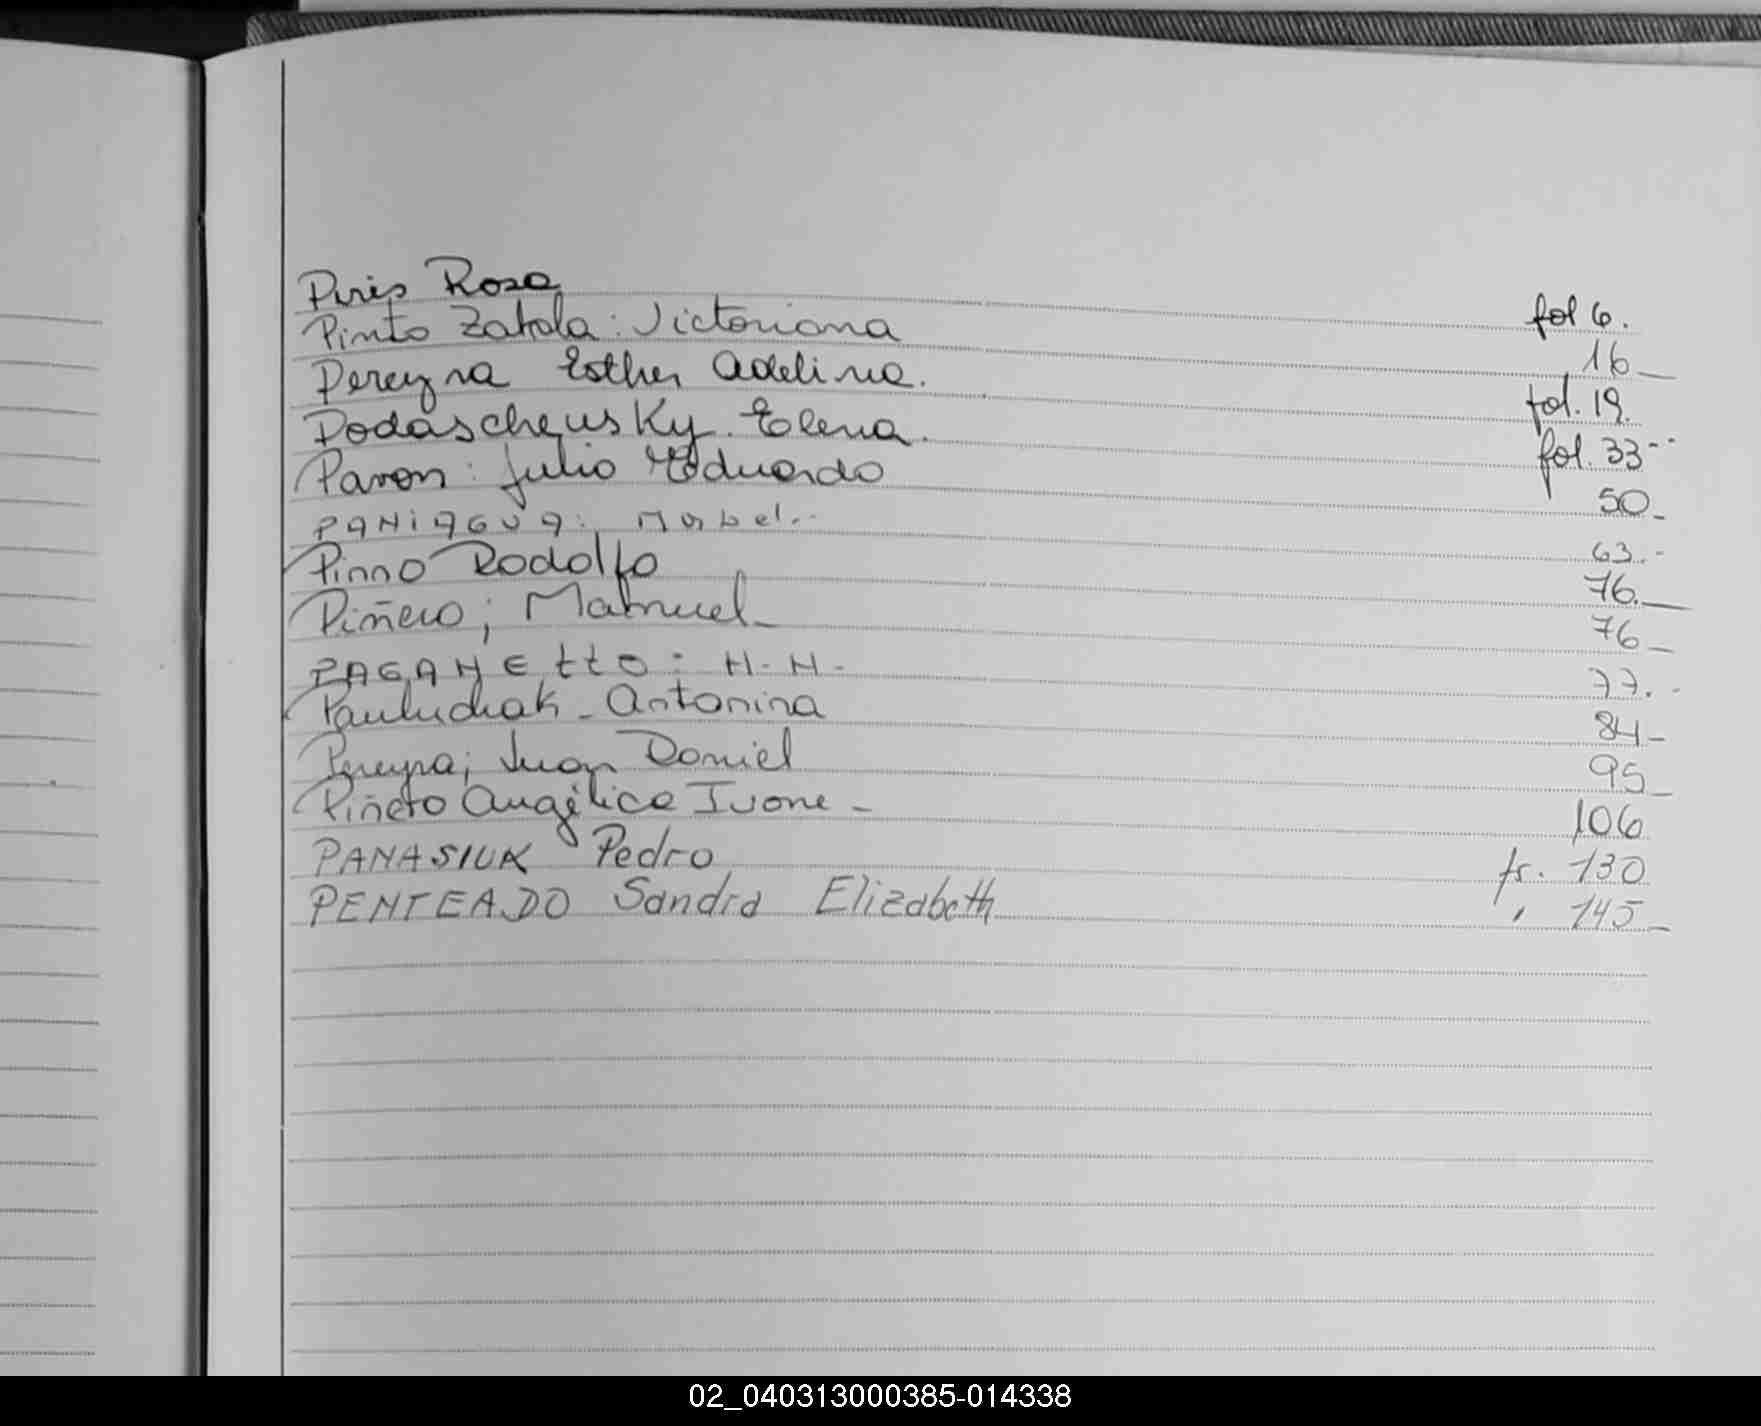 Piris Rosa fol 6.
Pinto Zabala: Victoriana 16
Pereyra Esther Adelina. fol. 19.
Podascheusky. Elena. fol. 33
Pavon: Julio Eduardo 50
PANIAGUA: Mabel. 63.-
Pinno Rodolfo 76.
Piñero; Manuel 76
PAGANEttO: H. H. 77.
Pauluchak - Antonina 84
Pereyra; Juan Daniel 95
Piñero Angélica Ivone - 106
PANASIUK Pedro fs. 130
PENTEADO Sandra Elizabeth , 145
02_040313000385-014338